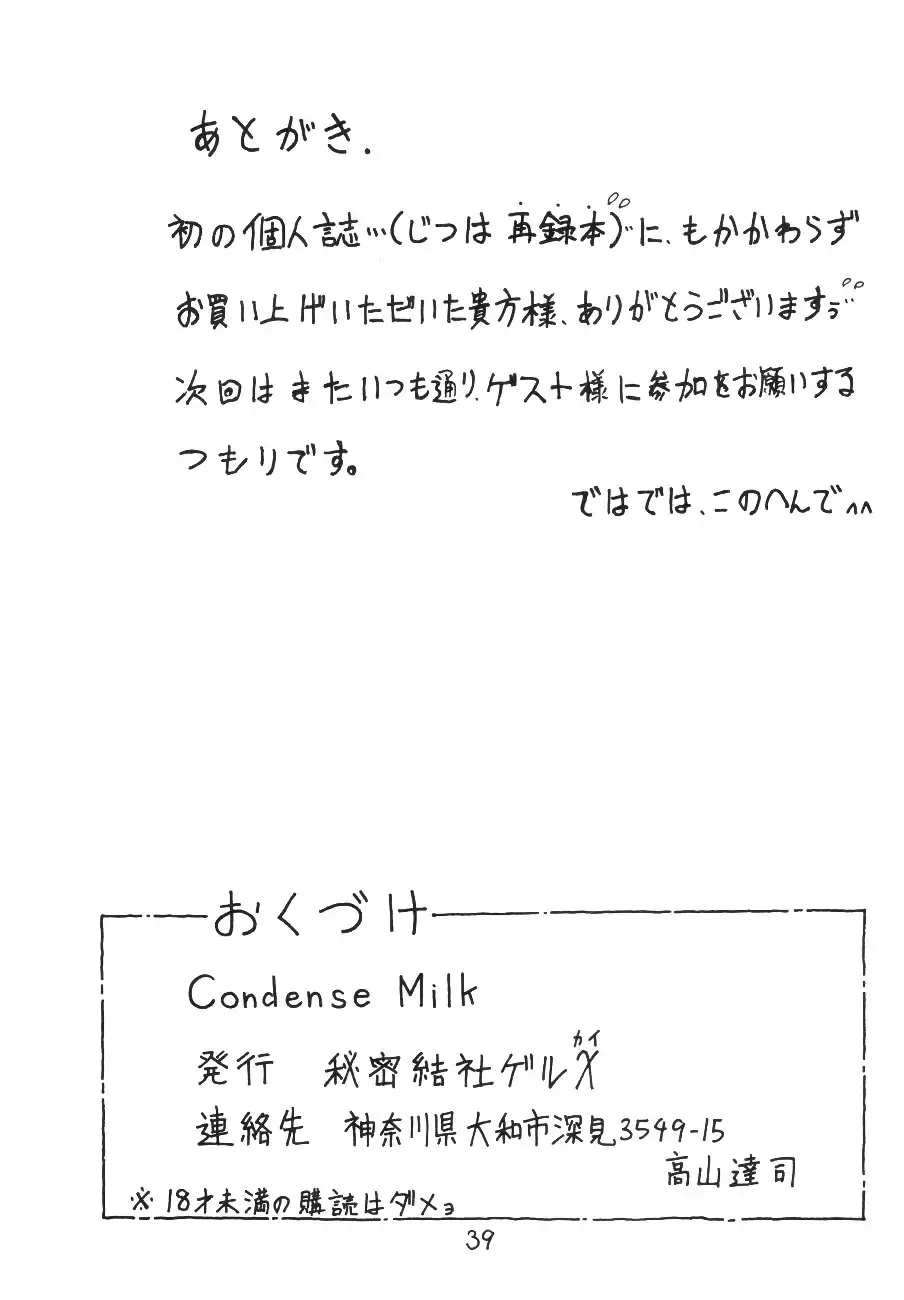 あとがき.
初の個人誌…(じつは再録本)…に、もかかわらず
お買い上げいただいた貴方様、ありがとうございますぅ…
次回はまたいつも通り、ゲスト様に参加をお願いする
つもりです。
ではでは、このへんで^^
おくづけ
Condense Milk
発行 秘密結社ゲルχ
カイ
連絡先 神奈川県大和市深見3549-15
高山達司
※18才未満の購読はダメョ
39